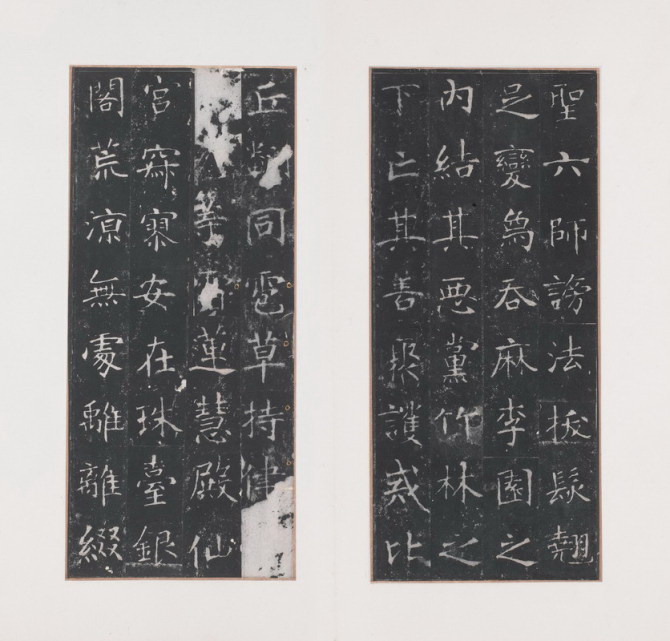 聖六師謗法拔髮翹
足變為吞麻李園之
內結其惡黨竹林之
下亡其善聚護戒比
丘同雹草持律
等蓮慧殿仙
宮寂寥安在珠臺銀
閣荒涼無處離離綴